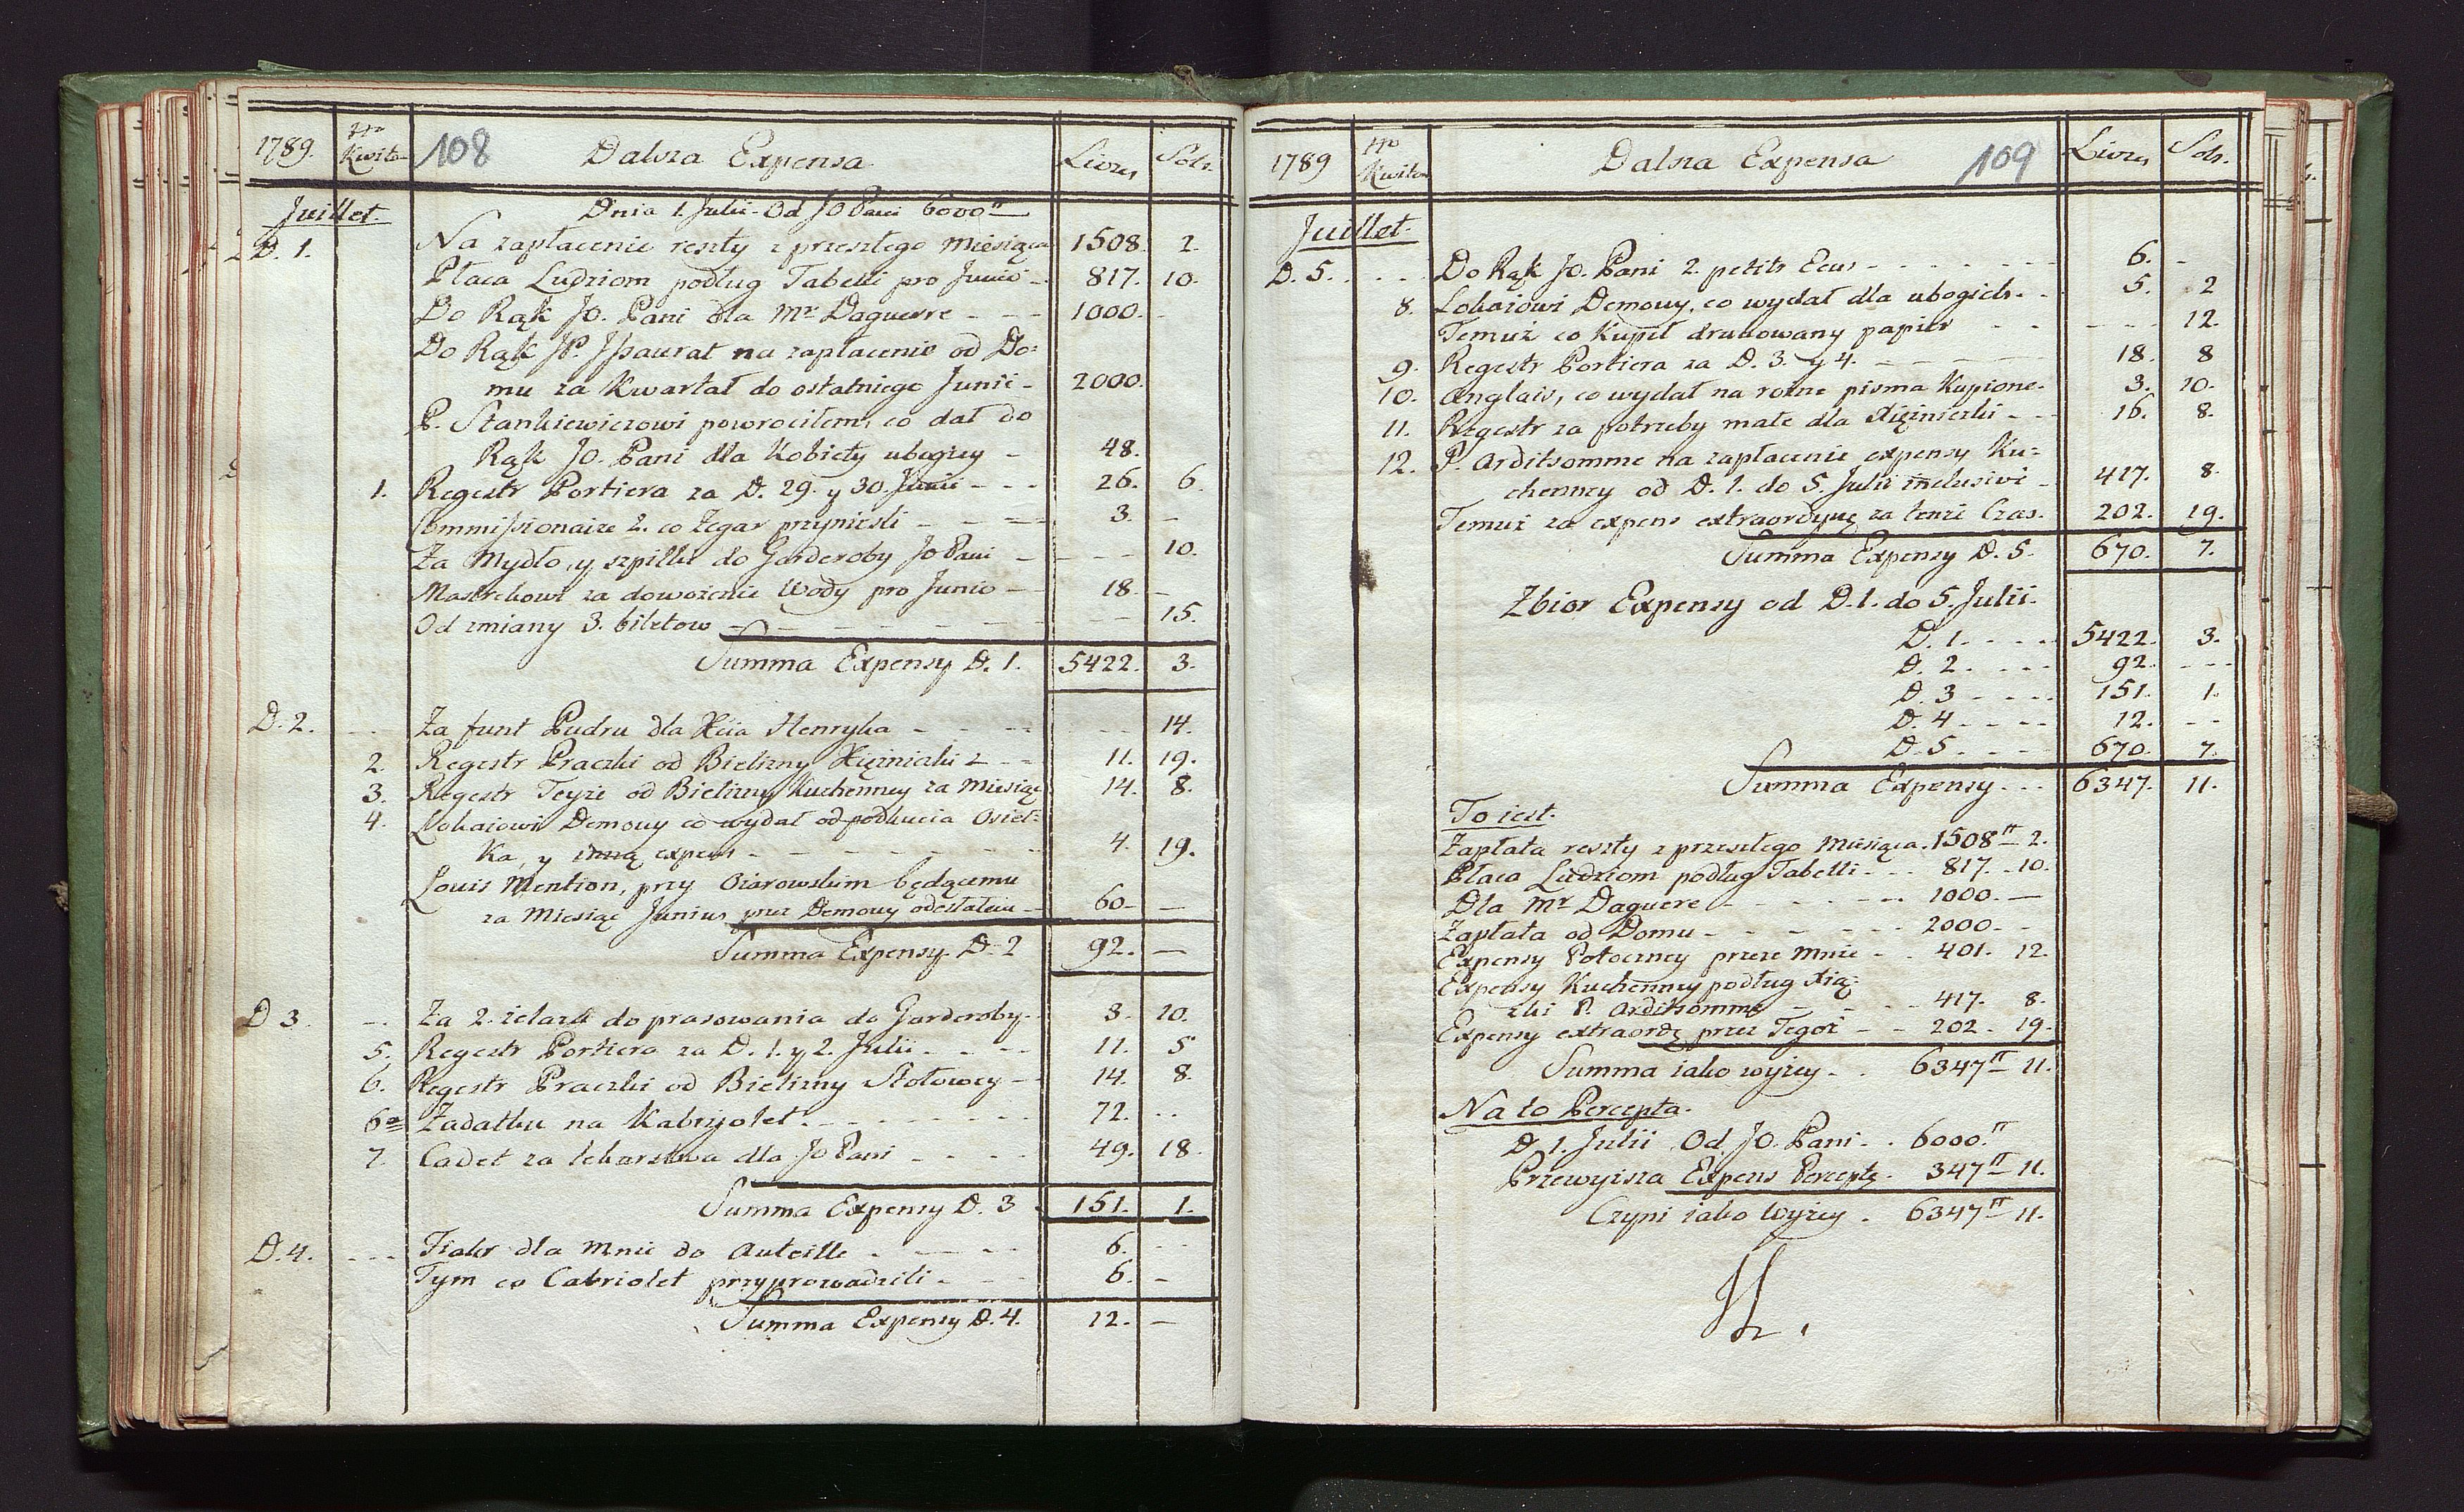 1789. Nro Kwitow 108 Dalsza Expensa Livres Sols.
Juillet. Dnia 1. Julii Od JO Pani 6000tt
D. 1. Na zapłacenie reszty z przeszłego Miesiąca 1508. 2.
Płaca Ludziom podług Tabelli pro Junio 817. 10.
Do Rąk JO. Pani dla Mr Daguerre 1000. -
Do Rąk JP. Jssaurat na zapłacenie od Do=
mu za Kwartał do ostatniego Junii 2000.
P. Stankiewiczowi powrociłem, co dał do
Rąk JO. Pani dla Kobiety ubogiey 48.
1. Regestr Portiera za D. 29. y 30. Junii 26. 6.
Commissionaire 2. co Zegar przyniesli 3. -
Za Mydło, y szpilki do Garderoby JO Pani 10.
Mastrekowi za dowożenie Wody pro Junio 18 -
Od zmiany 3. biletow 15.
Summa Expensy D. 1. 5422. 3.
D. 2. Za funt Pudru dla Xcia Henryka 14.
2. Regestr Praczki od Bielizny Xiężniczki 11. 19.
3. Regestr Teyże od Bielizny Kuchenney za Miesiąc 14. 8.
4. Lokaiowi Demouy co wydał od podkucia Osieł=
ka, y inną expens 4. 19.
Louis Mention, przy Ożarowskim będącemu
za Miesiąc Junius przez Demouy odesłałem 60 -
Summa Expensy D. 2 92. -
D 3. Za 2. żelazka do prasowania do Garderoby 3. 10.
5. Regestr Portiera za D. 1. y 2. Julii 11. 5
6. Regestr Praczki od Bielizny Stołowey 14. 8.
6a Zadatku na Kabryolet 72.
7. Cadet za lekarstwa dla JO Pani 49. 18.
Summa Expensy D. 3 151. 1.
D. 4. Fiakr dla Mnie do Auteille 6. -
Tym co Cabriolet przyprowadzili 6. -
Summa Expensy D. 4. 12. -
1789 Nro Kwitow Dalsza Expensa 109 Livres Sols.
Juillet.
D. 5. Do Rąk JO. Pani 2. petits Ecus 6. -
8. Lokaiowi Demouy, co wydał dla ubogich 5. 2
Temuż co Kupił drukowany papier 12.
9. Regestr Portiera za D. 3. y 4. 18. 8
10. Anglais, co wydał na rożne pisma Kupione 3. 10.
11. Regestr za potrzeby małe dla Xiężniczki 16. 8.
12. P. Arditsomme na zapłacenie expensy Ku=
chenney od D. 1. do 5. Julii inclusivè 417. 8.
Temuż za expens extraordyną za tenże Czas. 202. 19.
Summa Expensy D. 5. 670. 7.
Zbior Expensy od D. 1. do 5. Julii.
D. 1. 5422. 3.
D. 2. 92. -
D. 3 151. 1.
D. 4 12. -
D. 5 670. 7.
Summa Expensy 6347. 11.
To iest.
Zapłata reszty z przeszłego Miesiąca. 1508tt 2.
Płaca Ludziom podług Tabelli 817. 10.
Dla Mr Daguere 1000. -
Zapłata od Domu 2000. -
Expensy Potoczney przeze Mnie 401. 12.
Expensy Kuchenney podług Xią=
żki P. Arditsomme 417. 8.
Expensy extraordę przez Tegoż 202. 19.
Summa iako wyżey 6347tt 11.
Na to Percepta.
D. 1. Julii Od JO. Pani 6000.tt
Przewyższa Expens Perceptę. 347tt 11.
Czyni iako Wyżey 6347tt 11.